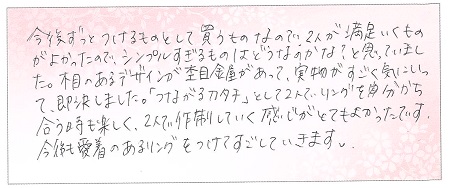 今後ずっとつけるものとして買うものなので、2人が満足いくもの
がよかったので、シンプルすぎるものはどうなのかな?と思っていまし
た。木目のあるデザインが杢目金屋があって、実物がすごく気に入っ
て、即決しました。「つながるカタチ」として2人でリングを自分かち
合う時も楽しく、2人で作制していく感じがとてもよかったです。
今後も愛着のあるリングをつけてすごしていきます。